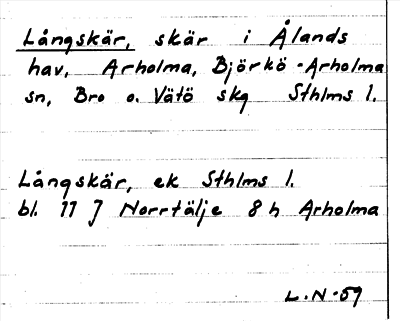 Långskär, skär i Ålands
hav, Arholma, Björkö-Arholma
sn, Bro o. Vätö skg Sthlms l.
Långskär, ek Sthlms l.
bl. 11 J Norrtälje 8 h Arholma
L.N-59